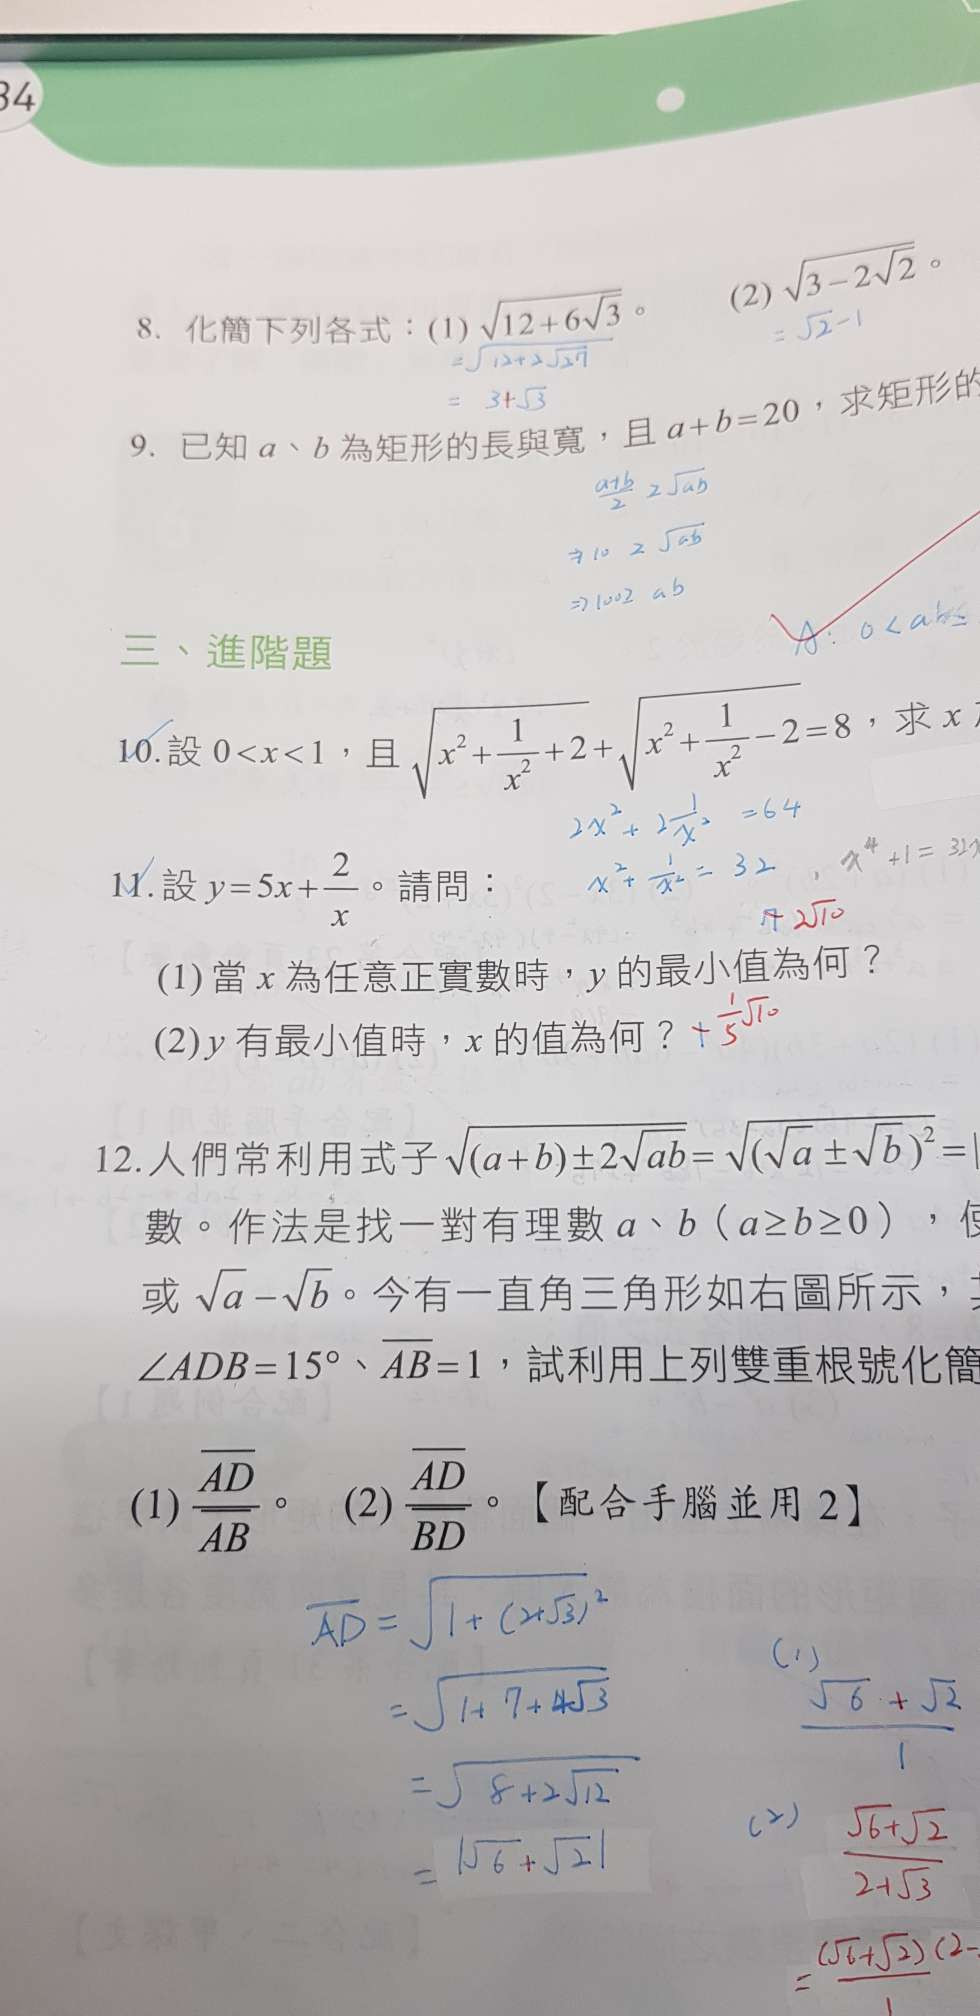 34
8. 化簡下列各式：(1) √(12+6√3)。 (2) √(3-2√2)。
=√(12+2√27) =√2-1
= 3+√3
9. 已知 a、b 為矩形的長與寬，且 a+b=20，求矩形的
(a+b)/2 ≥ √ab
⇒ 10 ≥ √ab
⇒ 100 ≥ ab
A: 0<ab≤
三、進階題
10. 設 0<x<1，且 √(x²+1/x²+2)+√(x²+1/x²-2)=8，求 x
2x²+2 1/x² =64
x²+1/x²=32, x⁴+1=32x
11. 設 y=5x+2/x。請問：
2√10
(1) 當 x 為任意正實數時，y 的最小值為何？
(2) y 有最小值時，x 的值為何？ 1/5√10
12. 人們常利用式子 √((a+b)±2√ab)=√((√a±√b)²)=|
數。作法是找一對有理數 a、b（a≥b≥0），使
或 √a-√b。今有一直角三角形如右圖所示，其
∠ADB=15°、AB=1，試利用上列雙重根號化簡
(1) AD/AB。 (2) AD/BD。【配合手腦並用 2】
AD=√(1+(2+√3)²)
=√(1+7+4√3)
=√(8+2√12)
=|√6+√2|
(1) (√6+√2)/1
(2) (√6+√2)/(2+√3)
=(√6+√2)(2-/1